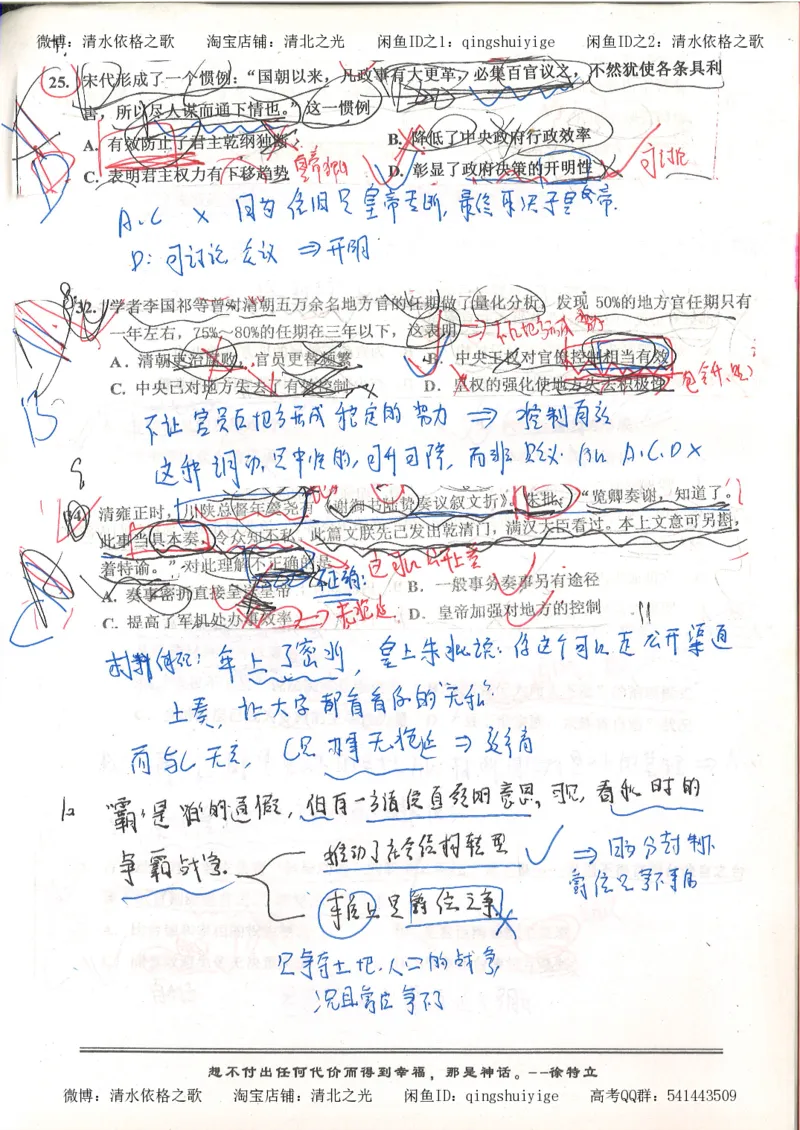 微博：清水依格之歌 淘宝店铺：清北之光 闲鱼ID之1：qingshuiyige 闲鱼ID之2：清水依格之歌
25. 宋代形成了一个惯例："国朝以来，凡政事有大更革，必集百官议之，不然犹使各条具利
害，所以尽人谋而通下情也。"这一惯例
A. 有效防止了君主乾纲独断 B. 降低了中央政府行政效率
C. 表明君主权力有下移趋势 D. 彰显了政府决策的开明性
可讨论
A.C × 因为依旧是皇帝专断，最终取决于皇帝.
D：可讨论会议 ⇒ 开明
32. 学者李国祁等曾对清朝五万余名地方官的任期做了量化分析，发现 50%的地方官任期只有
一年左右，75%～80%的任期在三年以下，这表明
A. 清朝吏治腐败，官员更替频繁 B. 中央王权对官僚控制相当有效
C. 中央已对地方失去了有效控制 D. 皇权的强化使地方失去积极性
不让官员在地方形成稳定的势力 ⇒ 控制有效
这种调动是中性的，可升可降，而非贬义 所以 A.C.D ×
34. 清雍正时，川陕总督年羹尧有《谢御书陆贽奏议叙文折》。朱批："览卿奏谢，知道了。
此事当具本奏，令众知不私，此篇文朕先已发出乾清门，满汉大臣看过。本上文意可另斟，
着特谕。"对此理解不正确的是
不正确：
A. 奏事密折直接呈送皇帝 B. 一般事务奏事另有途径
C. 提高了军机处办事效率 D. 皇帝加强对地方的控制
材料体现：年上了密折，皇上朱批说：你这个可以走公开渠道
上奏，让大家都看看你的"无私"
而与C无关，C只 办事无拖延 ⇒ 效率高
"霸"是"伯"的通假，但有一方诸侯首领的意思。可见，春秋时的
争霸战争
推动了社会结构转型 ✓ ⇒ 因为分封制下
爵位是争不来的
本质上是爵位之争 ×
是争夺土地、人口的战争，
况且爵位争不了
想不付出任何代价而得到幸福，那是神话。--徐特立
微博：清水依格之歌 淘宝店铺：清北之光 闲鱼ID：qingshuiyige 高考QQ群：541443509